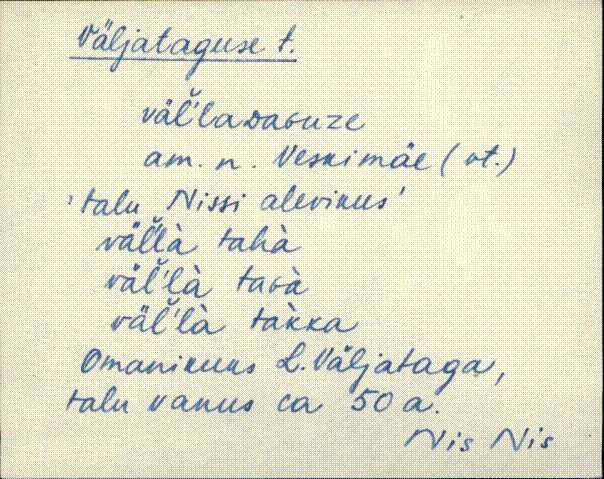 Väljataguse t.
väl̆'laᴅaɢuze
am. n. Veskimäe (vt.)
'talu Nissi alevikus'
väl̆'là tahà
väl̆'là taɢà
väl̆'là tàkka
Omanikuks L. Väljataga,
talu vanus ca 50 a.
Nis Nis